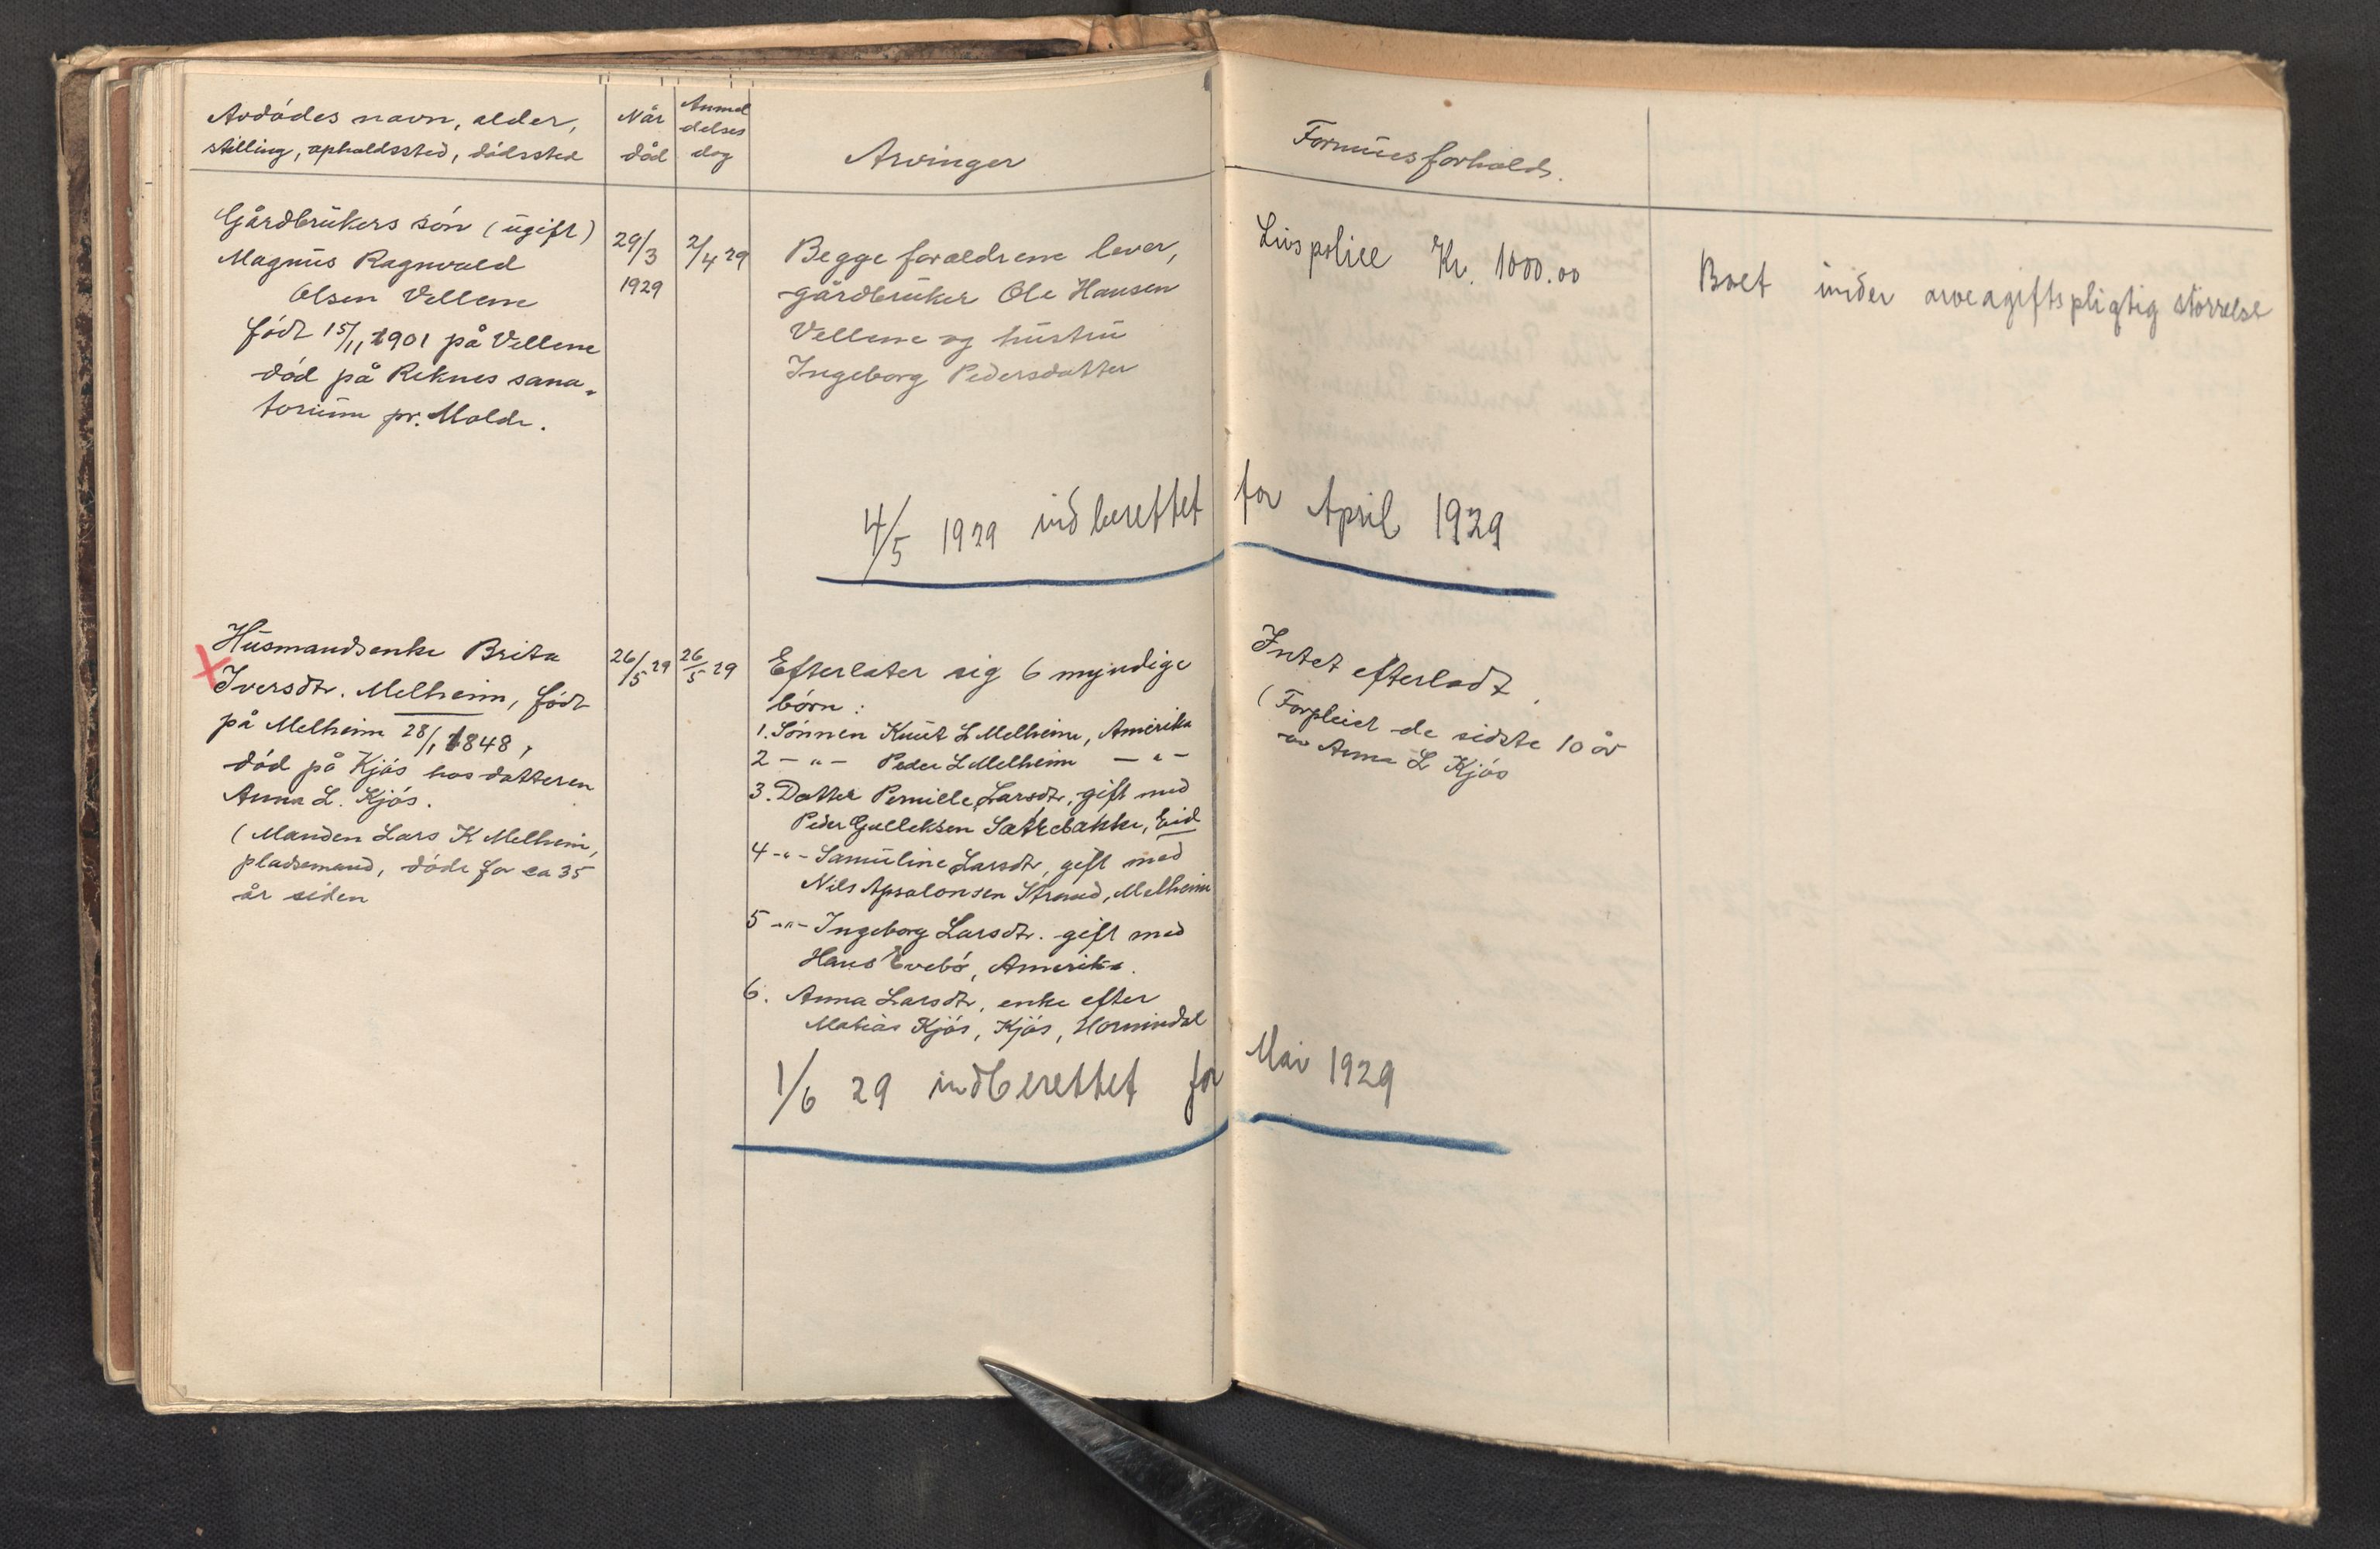 Avdødes navn, alder,
stilling, opholdssted, dødssted
Når
død
Anmel
delses
dag
Arvinger
Formuesforhold.
Gårdbrukers søn (ugift)
Magnus Ragnvald
Olsen Vellene
født 15/11 1901 på Vellene
død på Reknes sana-
torium pr. Molde.
29/3
1929
2/4 29
Begge forældrene lever,
gårdbruker Ole Hansen
Vellene og hustru
Ingeborg Pedersdatter
Livspolice Kr. 1000.00
Boet under arveagiftspligtig størrelse
4/5 1929 indberettet for April 1929
Husmandsenke Brita
Iversdtr. Melheim, født
på Melheim 28/1 1848,
død på Kjøs hos datteren
Anna L. Kjøs.
(Manden Lars K Melheim,
pladsemand, døde for ca 35
år siden
26/5 29
26/5 29
Efterlater sig 6 myndige
børn:
1. Sønnen Knut L Melheim, Amerika
2 -"- Peder L Melheim -"-
3. Datter Pernille Larsdtr, gift med
Peder Gulleksen Sætrebakke, Eid
4 -"- Samuline Larsdtr, gift med
Nils Apsalonsen Strand, Melheim
5 -"- Ingeborg Larsdtr. gift med
Hans Evebø, Amerika.
6. Anna Larsdtr, enke efter
Matias Kjøs, Kjøs, Hornindal
Intet efterladt.
(Forpleiet de sidste 10 år
av Anna L Kjøs
1/6 29 indberettet for Mai 1929